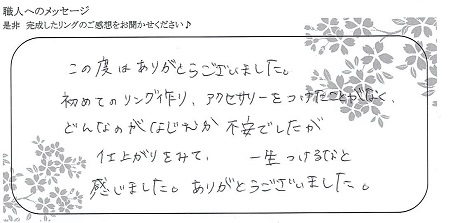 職人へのメッセージ
是非 完成したリングのご感想をお聞かせください♪
この度はありがとうございました。
初めてのリング作り、アクセサリーをつけたことがなく、
どんなのが なじむか 不安でしたが
仕上がりをみて、 一生つけるなと
感じました。ありがとうございました。